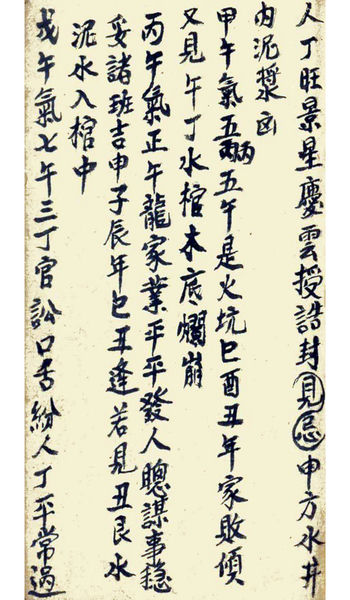 人丁旺景星慶雲授誥封見忌申方水井
內泥漿凶
甲午氣五丙五午是火坑巳酉丑年家敗傾
又見午丁水棺木底爛崩
丙午氣正午龍家業平平發人聰謀事穩
妥諸班吉申子辰年巳丑逢若見丑艮水
泥水入棺中
戊午氣七午三丁官訟口舌紛人丁平常過